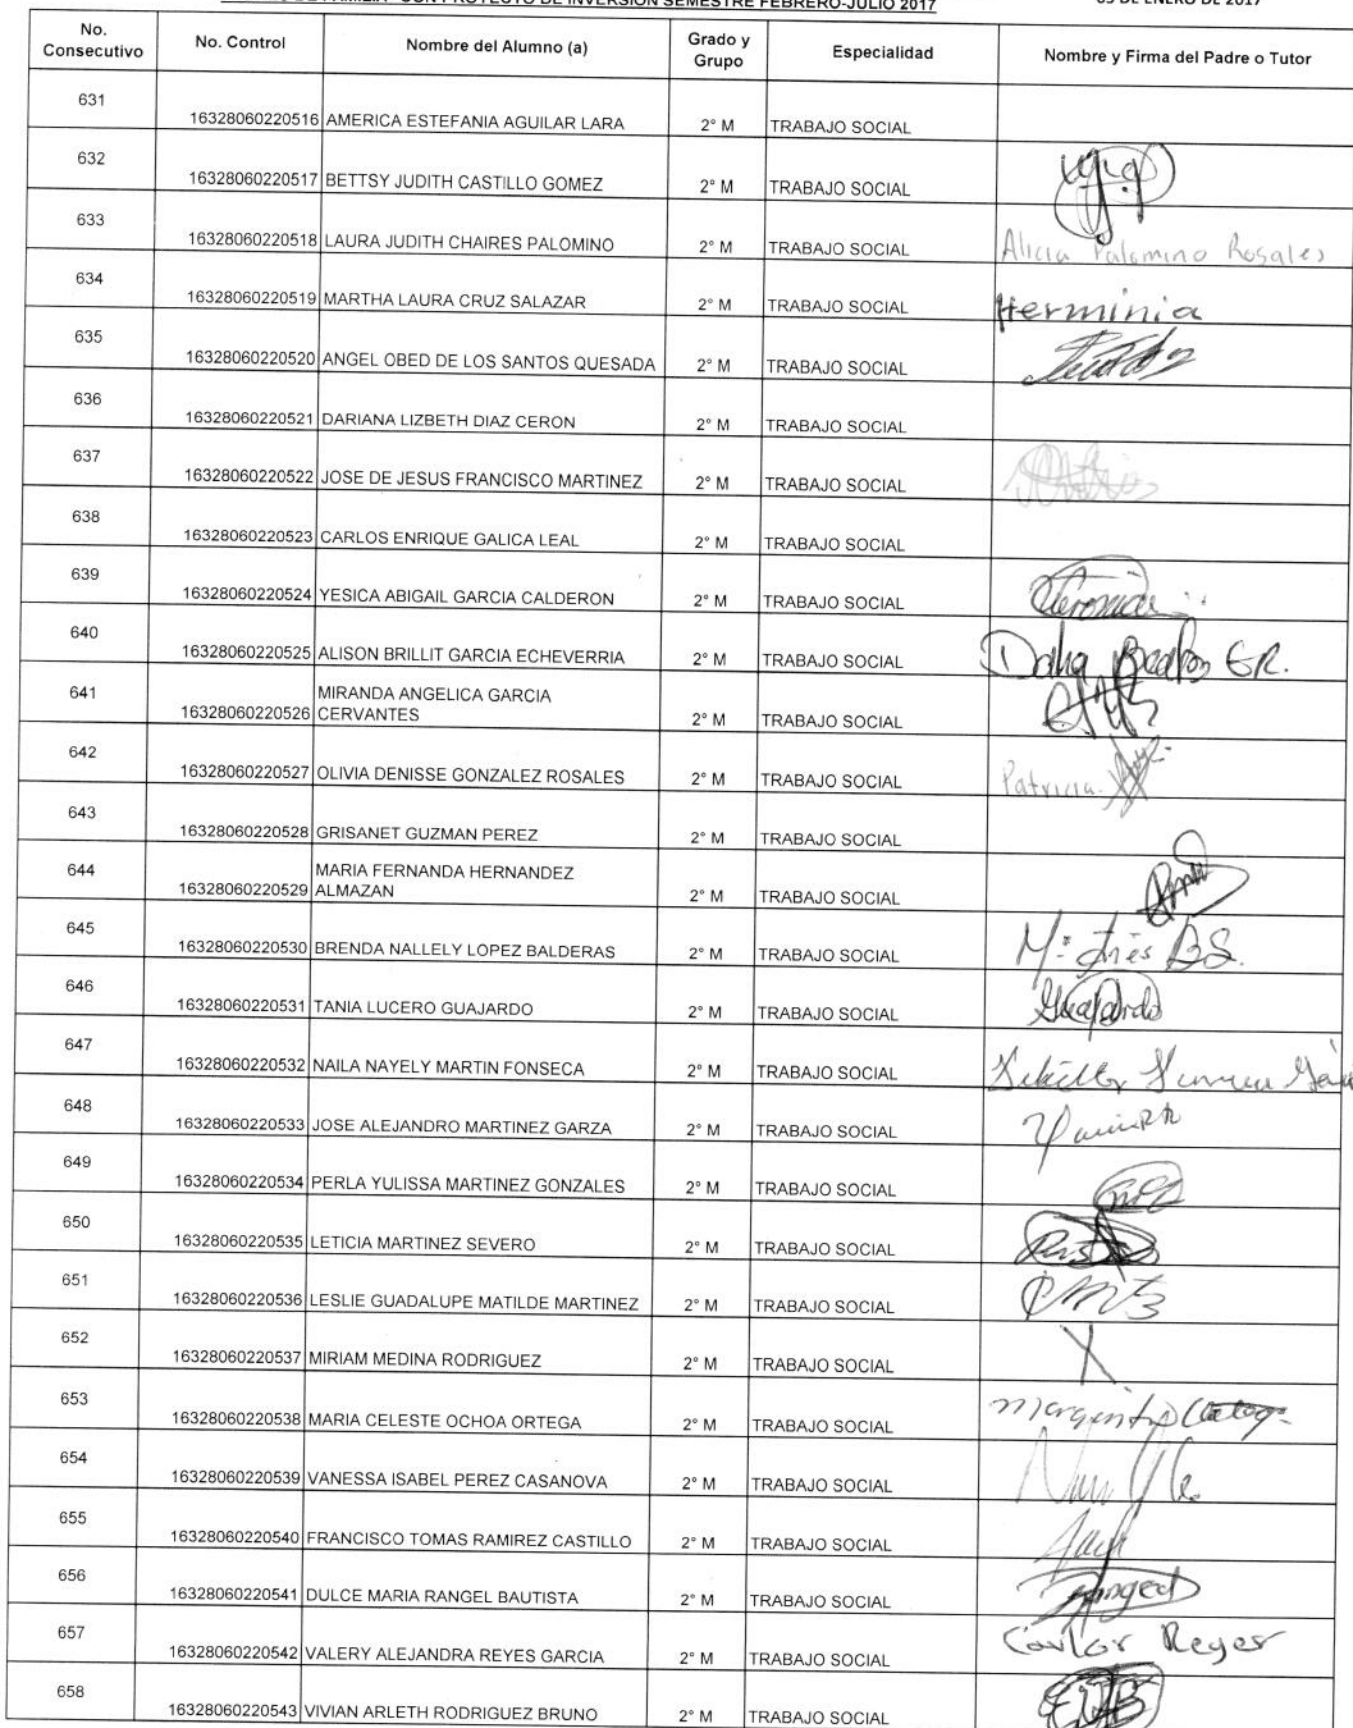 DE FAMILIA CON PROYECTO DE INVERSION SEMESTRE FEBRERO-JULIO 2017 DE ENERO DE 2017
No. Consecutivo No. Control Nombre del Alumno (a) Grado y Grupo Especialidad Nombre y Firma del Padre o Tutor
631 16328060220516 AMERICA ESTEFANIA AGUILAR LARA 2° M TRABAJO SOCIAL
632 16328060220517 BETTSY JUDITH CASTILLO GOMEZ 2° M TRABAJO SOCIAL
633 16328060220518 LAURA JUDITH CHAIRES PALOMINO 2° M TRABAJO SOCIAL Alicia Palomino Rosales
634 16328060220519 MARTHA LAURA CRUZ SALAZAR 2° M TRABAJO SOCIAL Herminia
635 16328060220520 ANGEL OBED DE LOS SANTOS QUESADA 2° M TRABAJO SOCIAL
636 16328060220521 DARIANA LIZBETH DIAZ CERON 2° M TRABAJO SOCIAL
637 16328060220522 JOSE DE JESUS FRANCISCO MARTINEZ 2° M TRABAJO SOCIAL
638 16328060220523 CARLOS ENRIQUE GALICA LEAL 2° M TRABAJO SOCIAL
639 16328060220524 YESICA ABIGAIL GARCIA CALDERON 2° M TRABAJO SOCIAL Veronica
640 16328060220525 ALISON BRILLIT GARCIA ECHEVERRIA 2° M TRABAJO SOCIAL
641 16328060220526 MIRANDA ANGELICA GARCIA CERVANTES 2° M TRABAJO SOCIAL
642 16328060220527 OLIVIA DENISSE GONZALEZ ROSALES 2° M TRABAJO SOCIAL Patricia
643 16328060220528 GRISANET GUZMAN PEREZ 2° M TRABAJO SOCIAL
644 16328060220529 MARIA FERNANDA HERNANDEZ ALMAZAN 2° M TRABAJO SOCIAL
645 16328060220530 BRENDA NALLELY LOPEZ BALDERAS 2° M TRABAJO SOCIAL Mª Inés B.S.
646 16328060220531 TANIA LUCERO GUAJARDO 2° M TRABAJO SOCIAL Guajardo
647 16328060220532 NAILA NAYELY MARTIN FONSECA 2° M TRABAJO SOCIAL
648 16328060220533 JOSE ALEJANDRO MARTINEZ GARZA 2° M TRABAJO SOCIAL
649 16328060220534 PERLA YULISSA MARTINEZ GONZALES 2° M TRABAJO SOCIAL
650 16328060220535 LETICIA MARTINEZ SEVERO 2° M TRABAJO SOCIAL
651 16328060220536 LESLIE GUADALUPE MATILDE MARTINEZ 2° M TRABAJO SOCIAL
652 16328060220537 MIRIAM MEDINA RODRIGUEZ 2° M TRABAJO SOCIAL X
653 16328060220538 MARIA CELESTE OCHOA ORTEGA 2° M TRABAJO SOCIAL
654 16328060220539 VANESSA ISABEL PEREZ CASANOVA 2° M TRABAJO SOCIAL
655 16328060220540 FRANCISCO TOMAS RAMIREZ CASTILLO 2° M TRABAJO SOCIAL
656 16328060220541 DULCE MARIA RANGEL BAUTISTA 2° M TRABAJO SOCIAL
657 16328060220542 VALERY ALEJANDRA REYES GARCIA 2° M TRABAJO SOCIAL Carlos Reyes
658 16328060220543 VIVIAN ARLETH RODRIGUEZ BRUNO 2° M TRABAJO SOCIAL